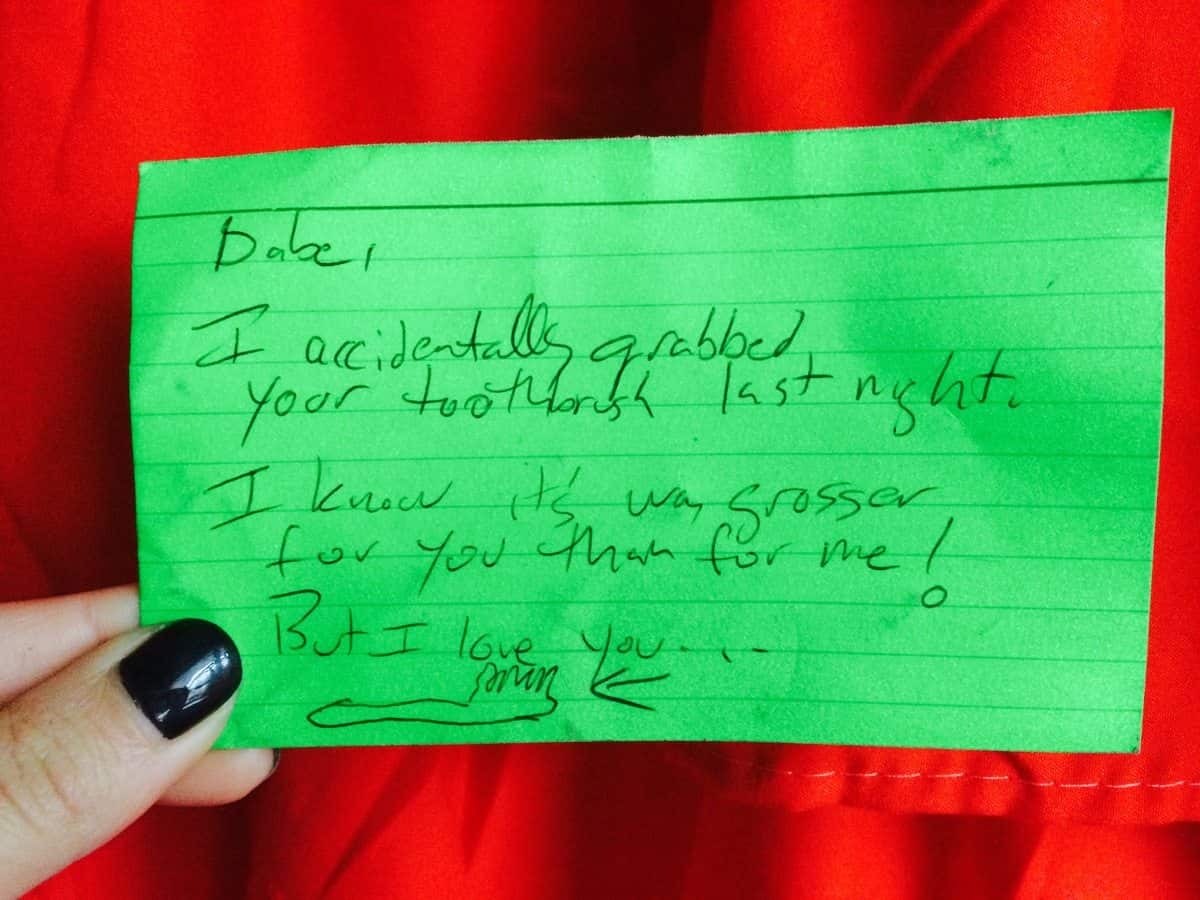 Babe,
I accidentally grabbed
your toothbrush last night.
I know it's way grosser
for you than for me!
But I love you....